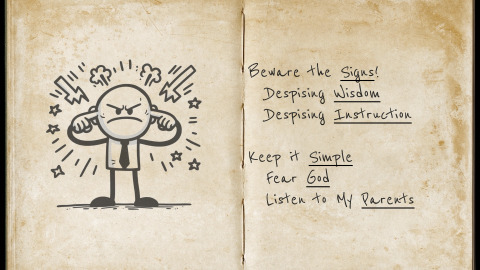 Beware the Signs!
Despising Wisdom
Despising Instruction
Keep it Simple
Fear God
Listen to My Parents